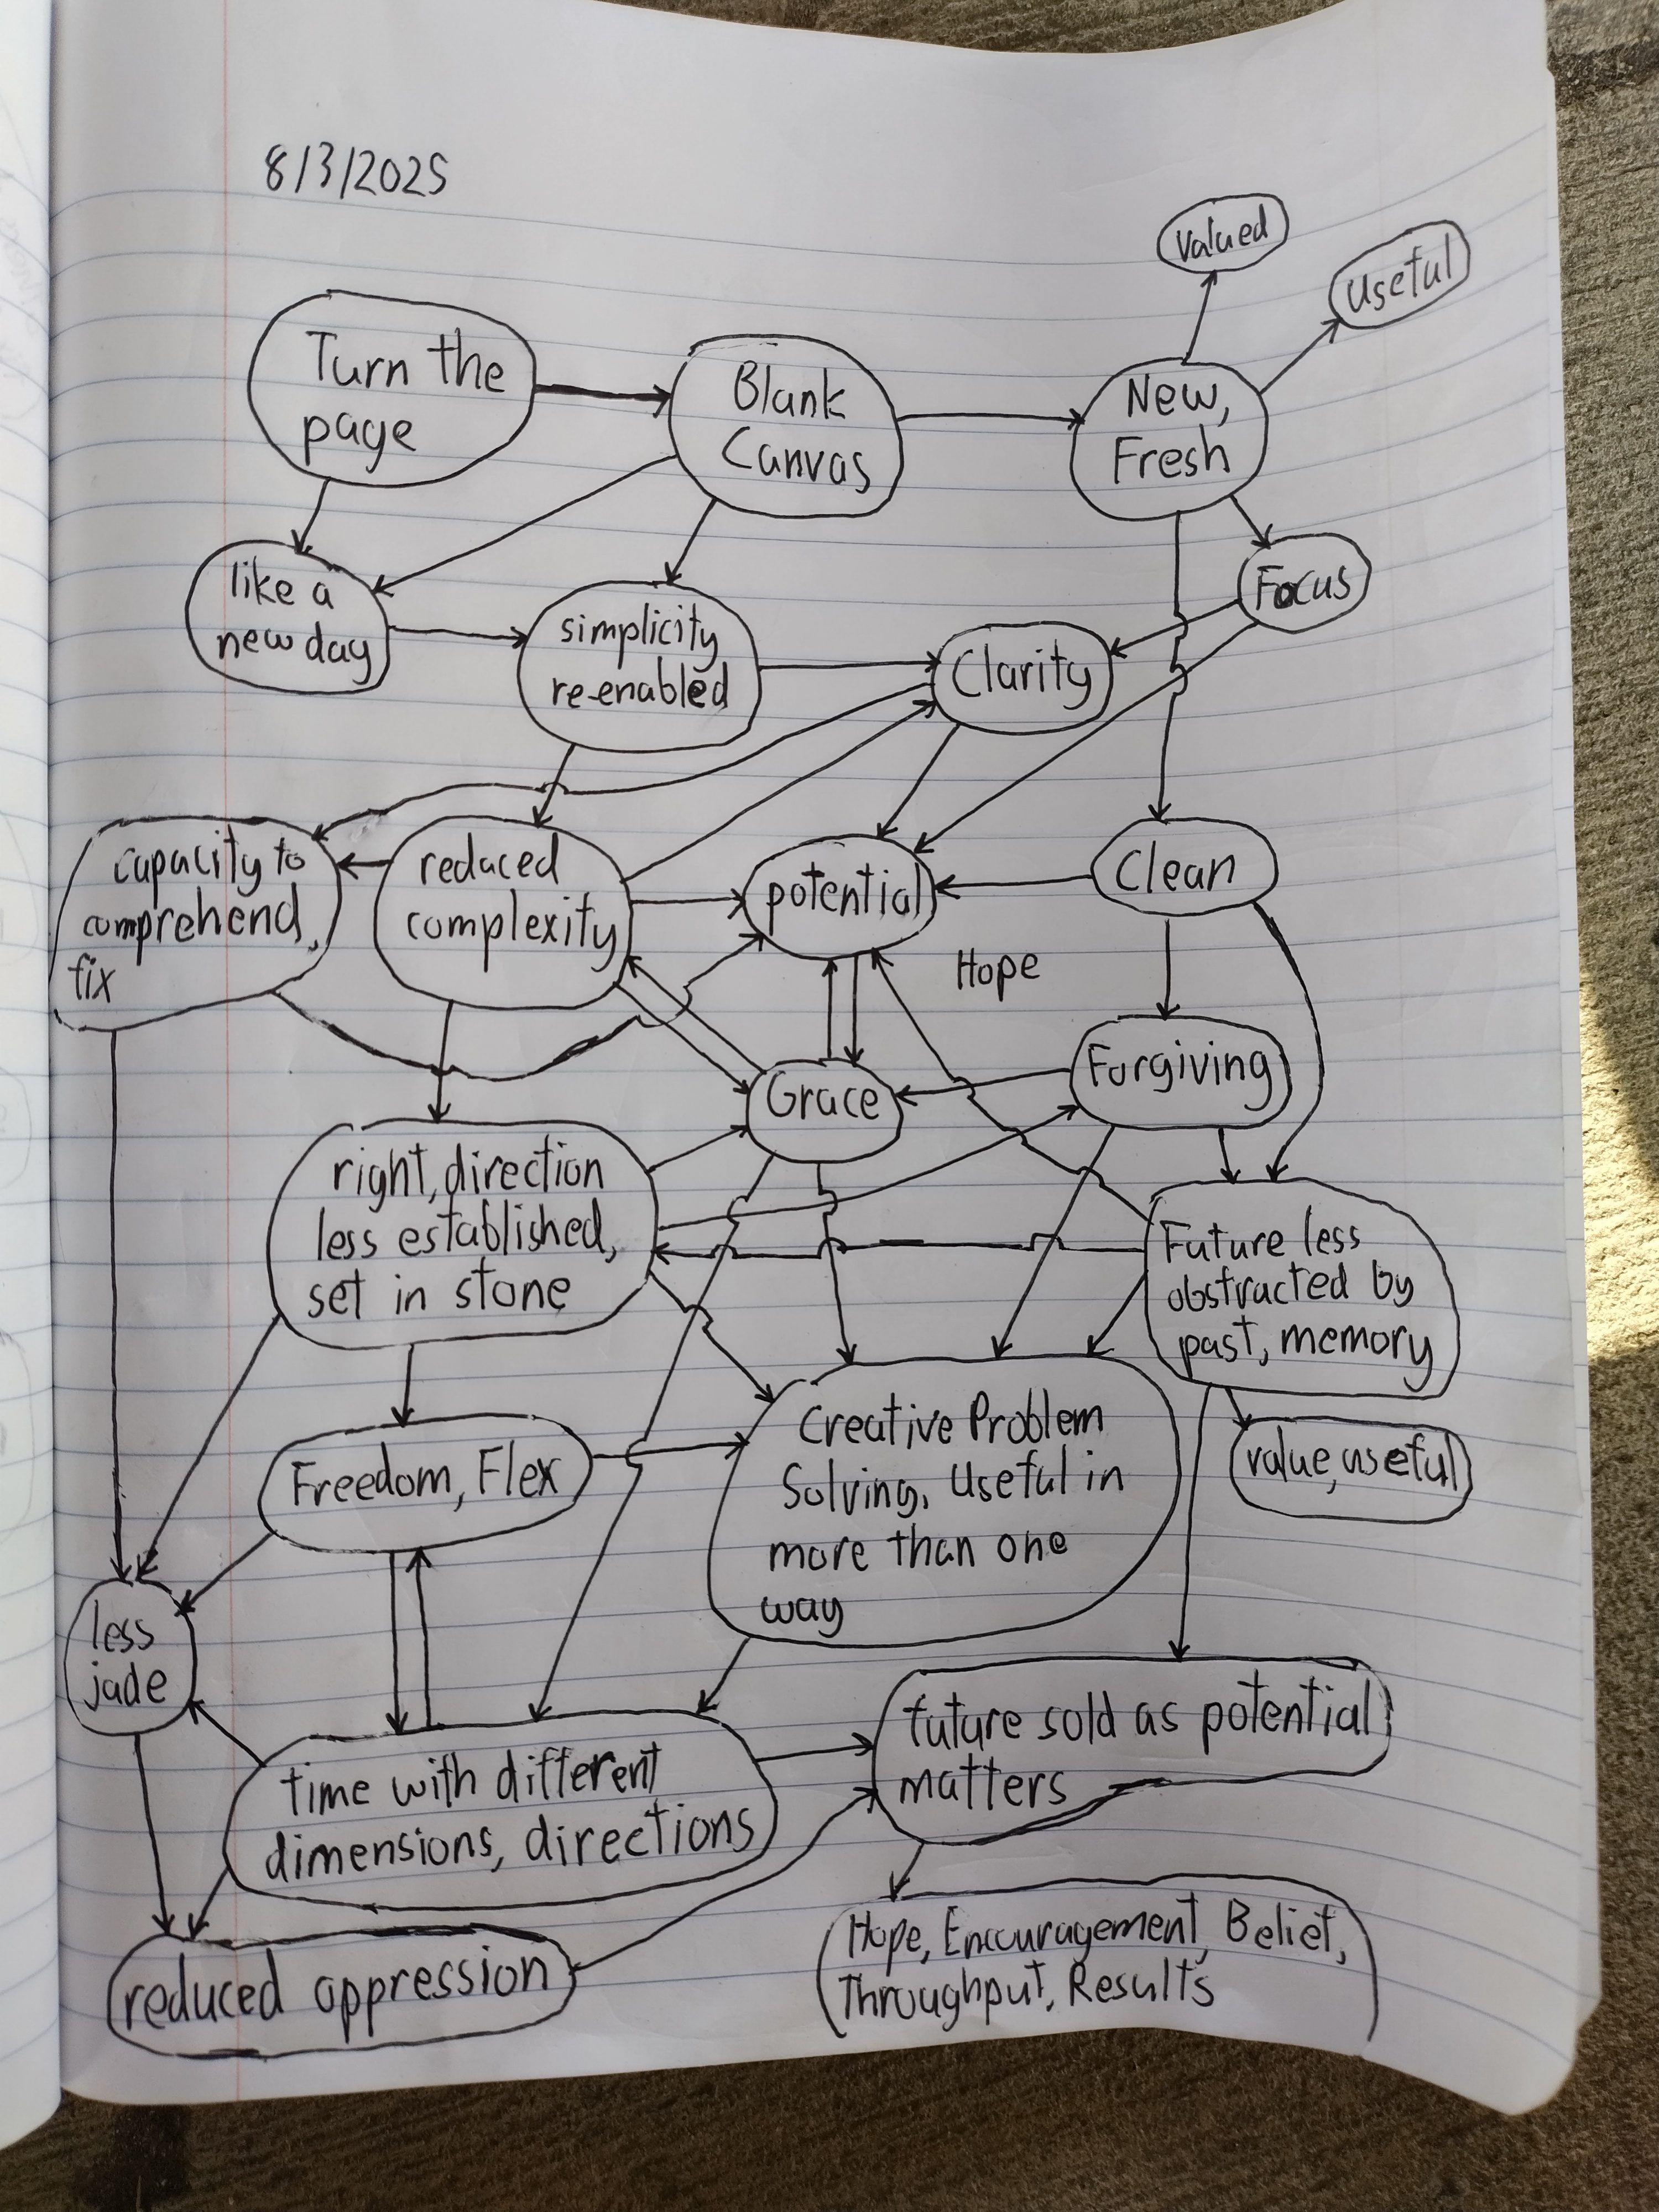 8/3/2025
Valued
Useful
Turn the
page
Blank
Canvas
New,
Fresh
like a
new day
simplicity
re-enabled
Clarity
Focus
capacity to
comprehend,
fix
reduced
complexity
potential
Clean
Hope
Grace
Forgiving
right, direction
less established,
set in stone
Future less
obstracted by
past, memory
Freedom, Flex
Creative Problem
Solving, Useful in
more than one
way
value, useful
less
jade
time with different
dimensions, directions
future sold as potential
matters
reduced oppression
Hope, Encouragement, Belief,
Throughput, Results